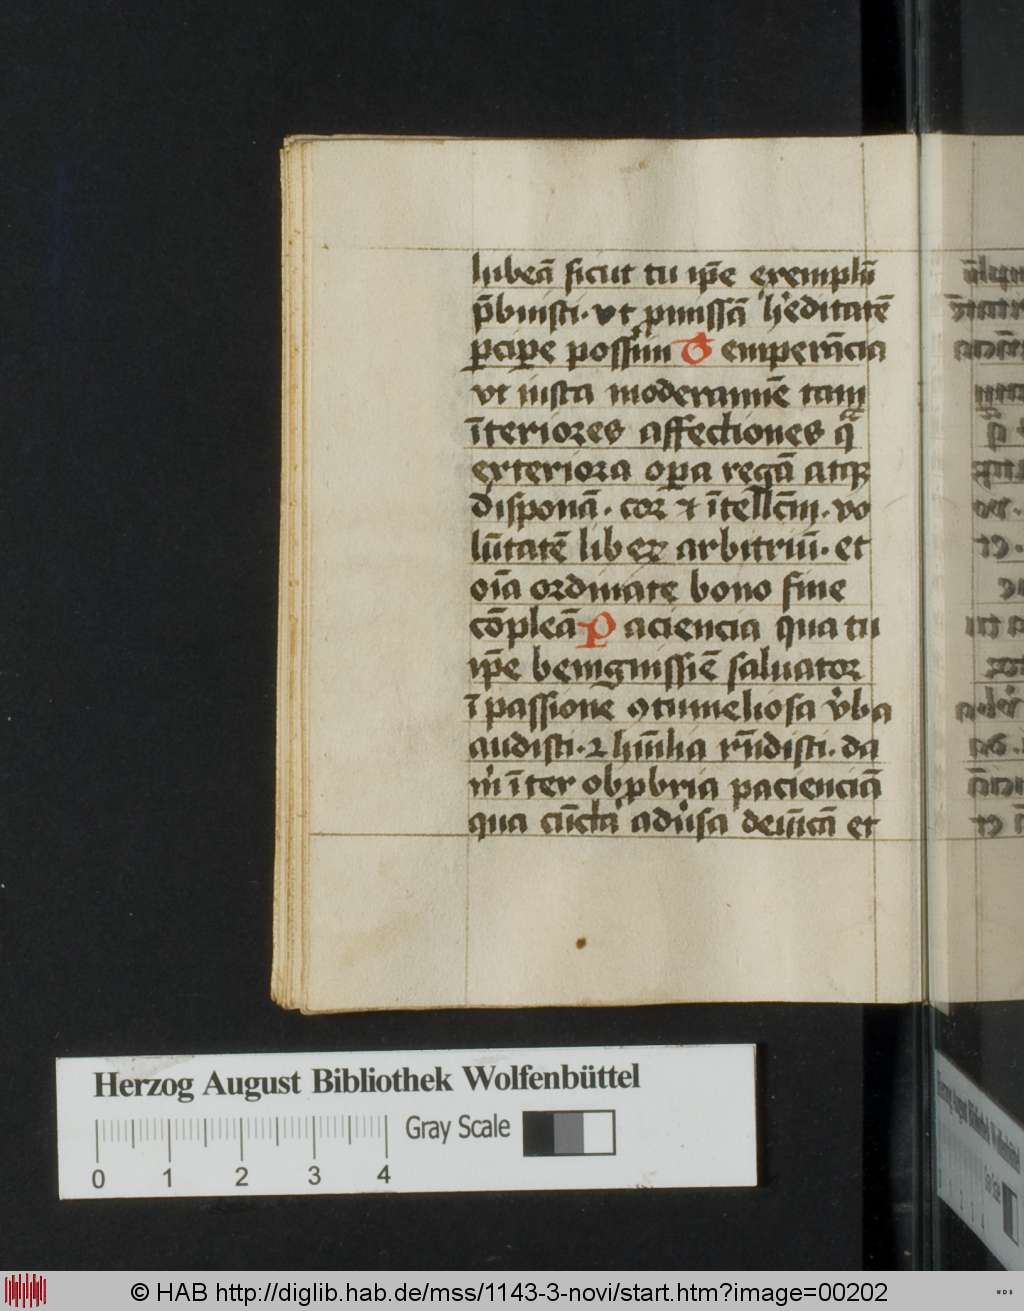 hubeā sicut tu ip̄e exemplū
p̄buisti · vt ꝓmissā h'editatē
ꝑcipe possim Temperācia
vt iusta moderamīe tam
īteriores affectiones qᷓ
exteriora oꝑa regā atqꝫ
disponā · cor ⁊ ītellc̄m · vo
lūtatē liberꝫ arbitriū · et
oīa ordinate bono fine
cōpleā Paciencia qua tu
ip̄e benignissīe saluator
ī passione ꝯtumeliosa v'ba
audisti · ⁊ hūilia rn̄disti · da
m' īter obꝓbria pacienciā
qua cūcta adu'sa deuīcā et
Herzog August Bibliothek Wolfenbüttel
Gray Scale
0 1 2 3 4
© HAB http://diglib.hab.de/mss/1143-3-novi/start.htm?image=00202